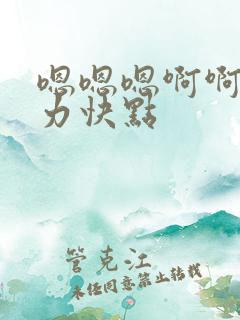 嗯嗯嗯啊啊
力快點
管克江
未经同意禁止转载